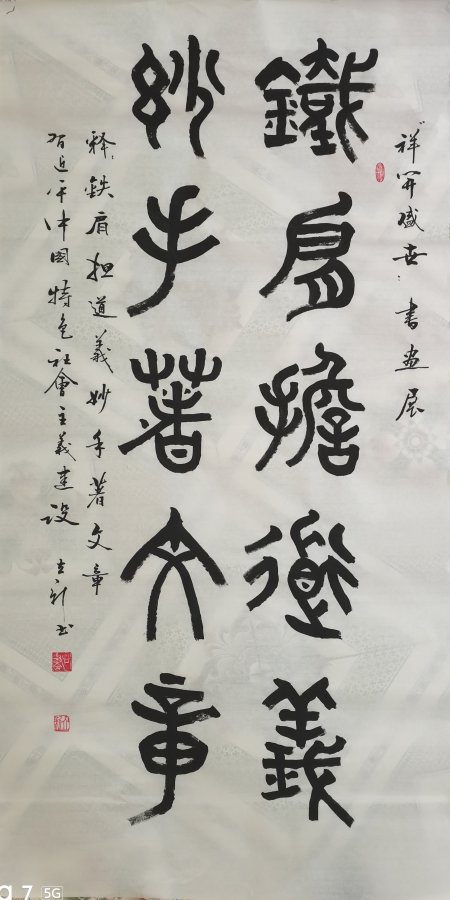 "祥開盛世"書畫展
鐵肩擔道義
妙手著文章
释:鉄肩担道義妙手著文章
習近平中国特色社會主義建设
9 7 5G